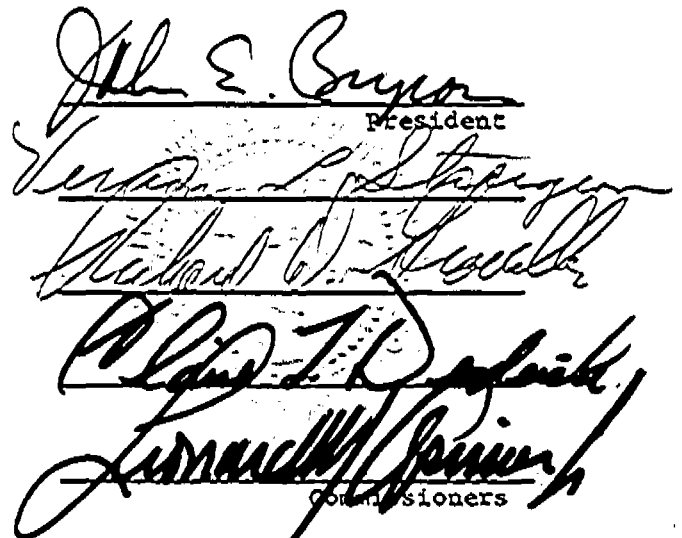 John E. Bryson
President
Vernon L. Sturgeon
Richard D. Gravelle
Claire T. Dedrick
Leonard M. Grimes Jr
Commissioners